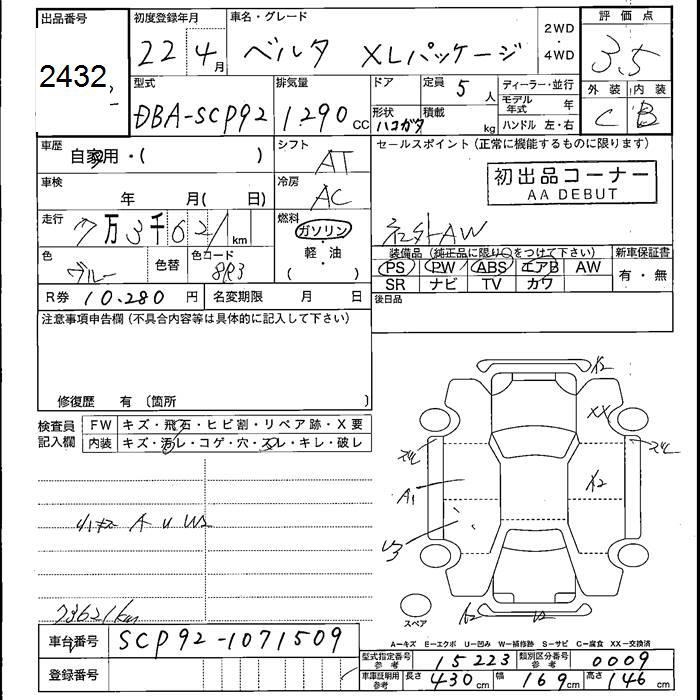 出品番号 初度登録年月 車名・グレード 2WD・4WD 評価点
2432 22 4月 ベルタ XLパッケージ 3.5
型式 排気量 ドア 定員 5人 ディーラー・並行 外装 内装
DBA-SCP92 1.290cc 形状 ハコガタ 積載 kg モデル年式 年 C B
ハンドル 左・右
車歴 自家用・( ) シフト AT セールスポイント (正常に機能するものに限ります)
車検 年 月( 日) 冷房 AC 初出品コーナー
AA DEBUT
走行 7万3千621km 燃料 ガソリン・軽油( ) 社外AW
色 ブルー 色替 色コード 8R3 装備品 (純正品に限り○をつけて下さい) 新車保証書
PS PW ABS エアB AW 有・無
SR ナビ TV カワ
R券 10.280円 名変期限 月 日 後日品
注意事項申告欄 (不具合内容等は具体的に記入して下さい)
修復歴 有 (箇所 )
検査員記入欄 FW キズ・飛石・ヒビ割・リペア跡・X要
内装 キズ・汚レ・コゲ・穴・スレ・キレ・破レ
A U W2
73621km
X2
XX
A1 X2
U3
A2 U2
スペア
A-キズ E-エクボ U-凹み W-補修跡 S-サビ C-腐食 XX-交換済
車台番号 SCP92-1071509
型式指定番号 参考 15223 類別区分番号 参考 0009
登録番号 車庫証明用 参考 長さ 430cm 幅 169cm 高さ 146cm